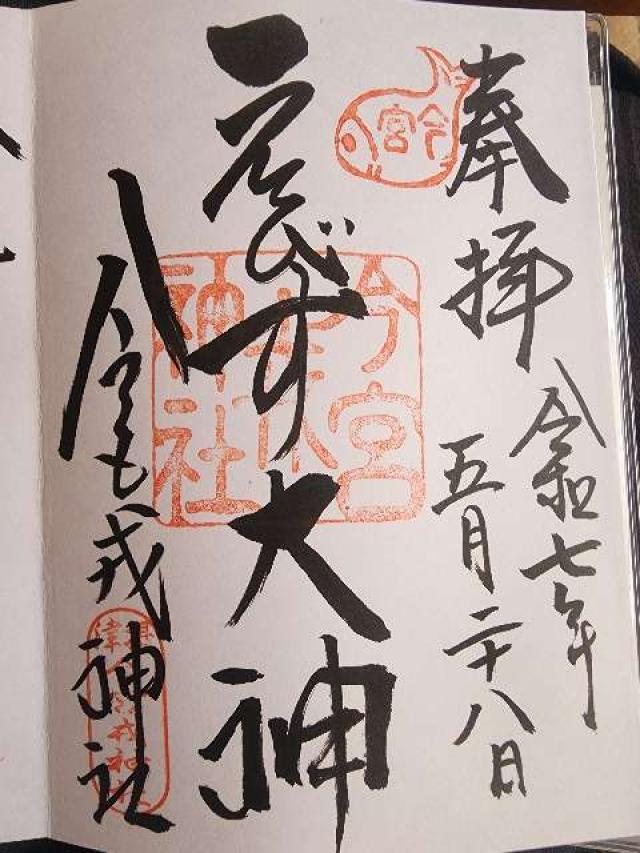 奉拝
令和七年
五月二十八日
今宮
ゑびす大神
今宮
戎
神社
今宮戎神社